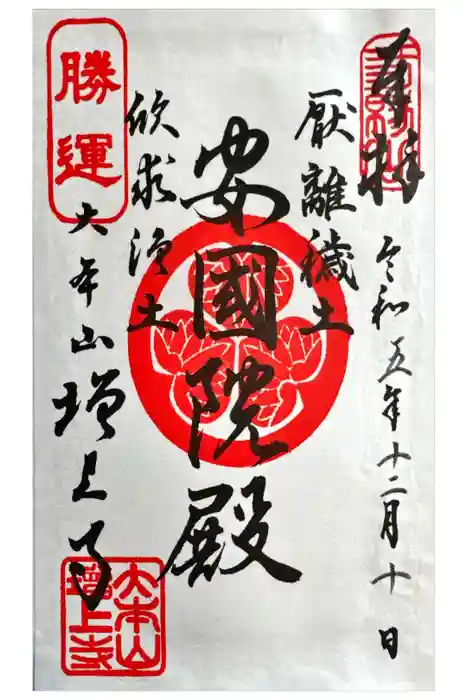 奉拝
令和五年十二月十日
厭離穢土
安國院殿
欣求浄土
勝運
大本山増上寺
大本山
增上寺